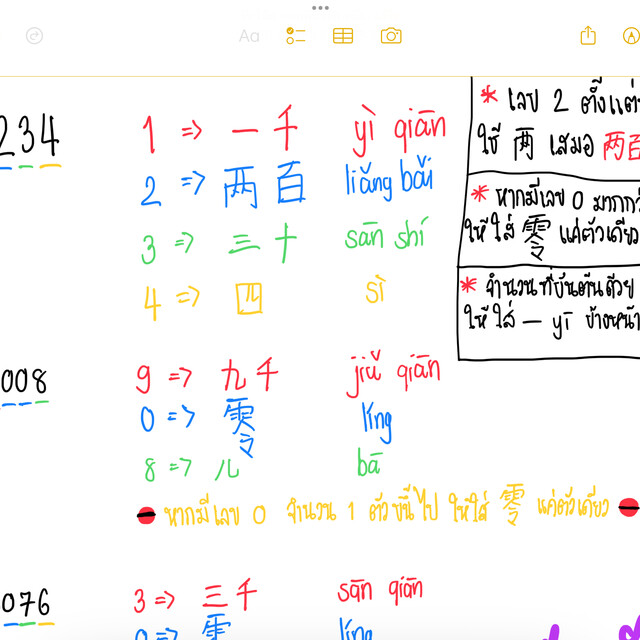 Aa
234
1 => 一千 yì qiān
2 => 两百 liǎng bǎi
3 => 三十 sān shí
4 => 四 sì
* เลข 2 ตั้งแต่
ใช้ 两 เสมอ 两百
* หากมีเลข 0 มากกว่
ให้ใส่ 零 แค่ตัวเดียว
* จำนวนที่ขึ้นต้นด้วย
ให้ใส่ 一 yī ข้างหน้า
008
9 => 九千 jiǔ qiān
0 => 零 líng
8 => 八 bā
หากมีเลข 0 จำนวน 1 ตัวขึ้นไป ให้ใส่ 零 แค่ตัวเดียว
076
3 => 三千 sān qiān
0 => 零 líng